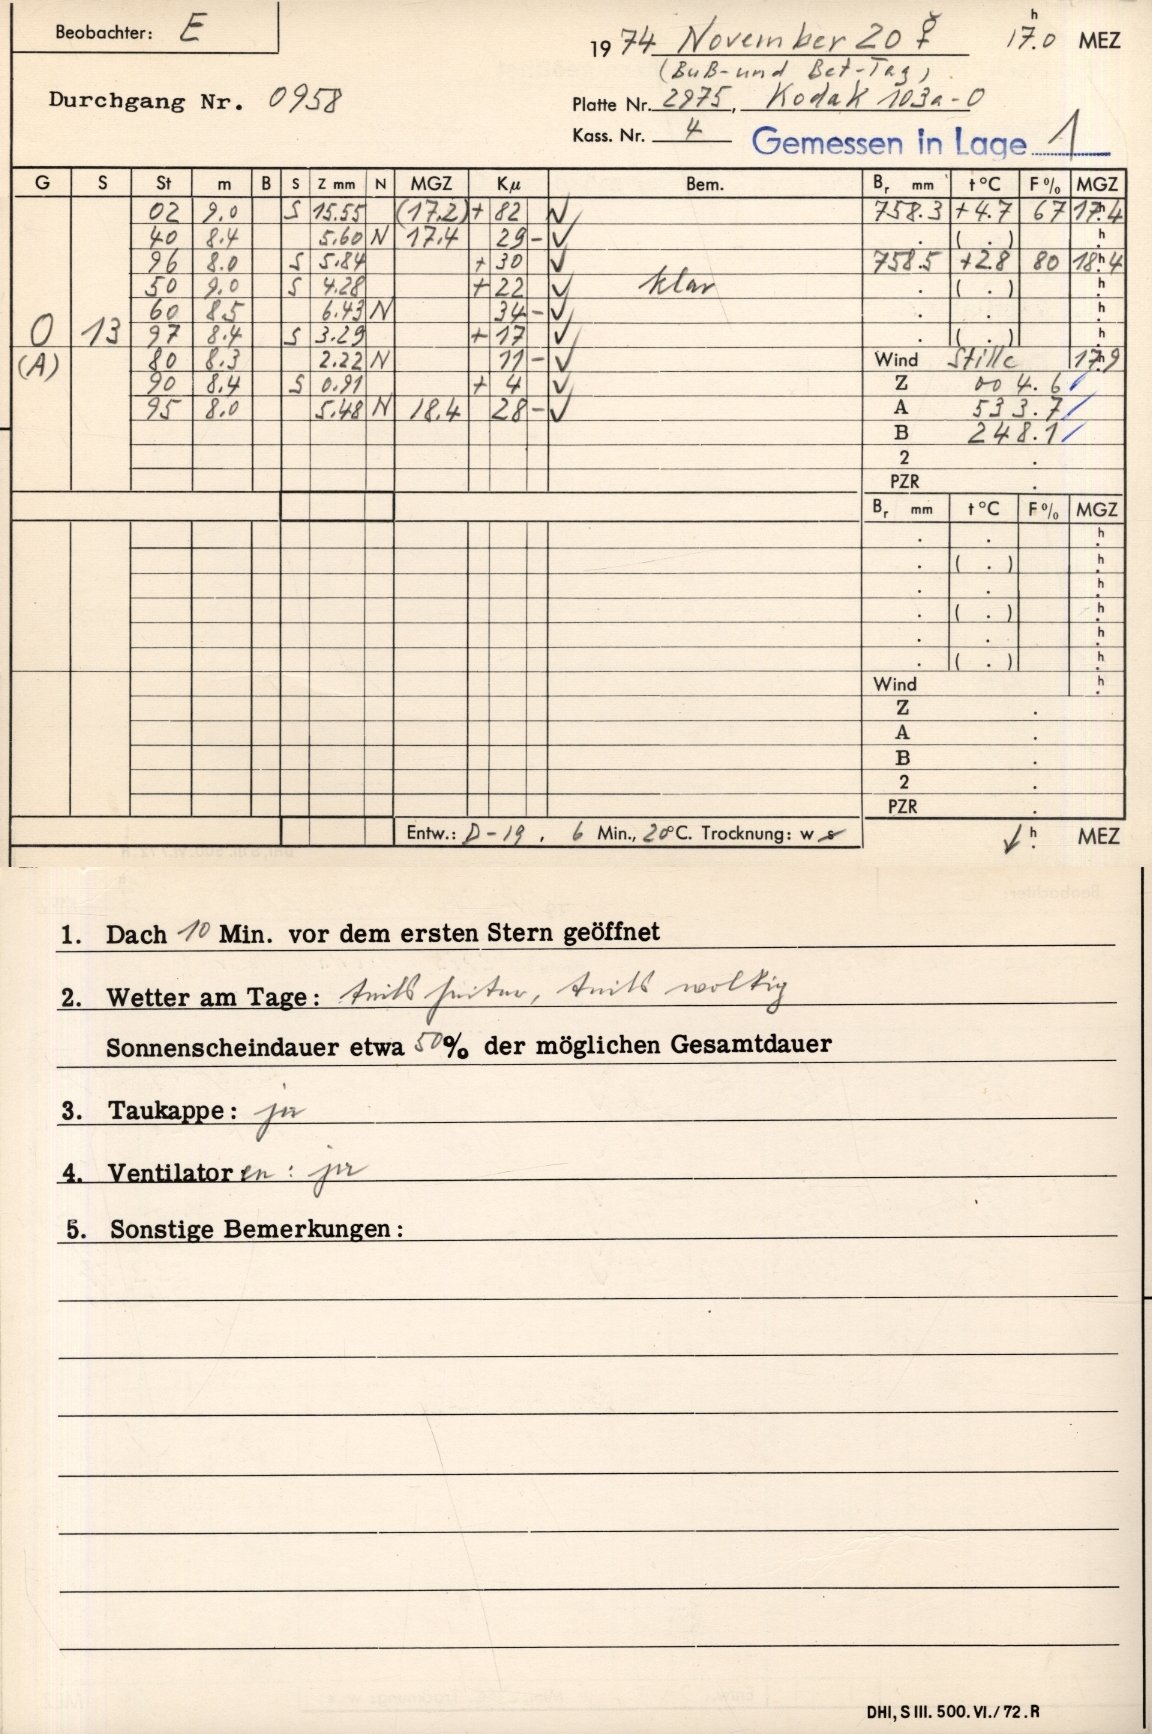 Beobachter: E
1974 November 20 ☿ 17.0 h MEZ
(Buß- und Bet-Tag)
Durchgang Nr. 0958
Platte Nr. 2975, Kodak 103a-O
Kass. Nr. 4 Gemessen in Lage 1
G S St m B S Z mm N MGZ Kμ Bem. Br mm t °C F % MGZ
02 9.0 S 15.55 (17.2) + 82 ✓ 758.3 +4.7 67 17.4 h
40 8.4 5.60 N 17.4 29 - ✓ . ( . ) h
96 8.0 S 5.84 + 30 ✓ 758.5 +2.8 80 18.4 h
50 9.0 S 4.28 + 22 ✓ klar . ( . ) h
60 8.5 6.43 N 34 - ✓ . . h
O 13 97 8.4 S 3.29 + 17 ✓ . ( . ) h
(A) 80 8.3 2.22 N 11 - ✓ Wind Stille 17.9 h
90 8.4 S 0.91 + 4 ✓ Z 004.6
95 8.0 5.48 N 18.4 28 - ✓ A 533.7
B 248.1
2 .
PZR .
Br mm t °C F % MGZ
. . h
. ( . ) h
. . h
. ( . ) h
. . h
. ( . ) h
Wind h
Z .
A .
B .
2 .
PZR .
Entw.: D-19, 6 Min., 20°C. Trocknung: w s ✓ h MEZ
1. Dach 10 Min. vor dem ersten Stern geöffnet
2. Wetter am Tage: teils heiter, teils wolkig
Sonnenscheindauer etwa 50% der möglichen Gesamtdauer
3. Taukappe: ja
4. Ventilatoren: ja
5. Sonstige Bemerkungen:
DHI, S III. 500. VI./72. R